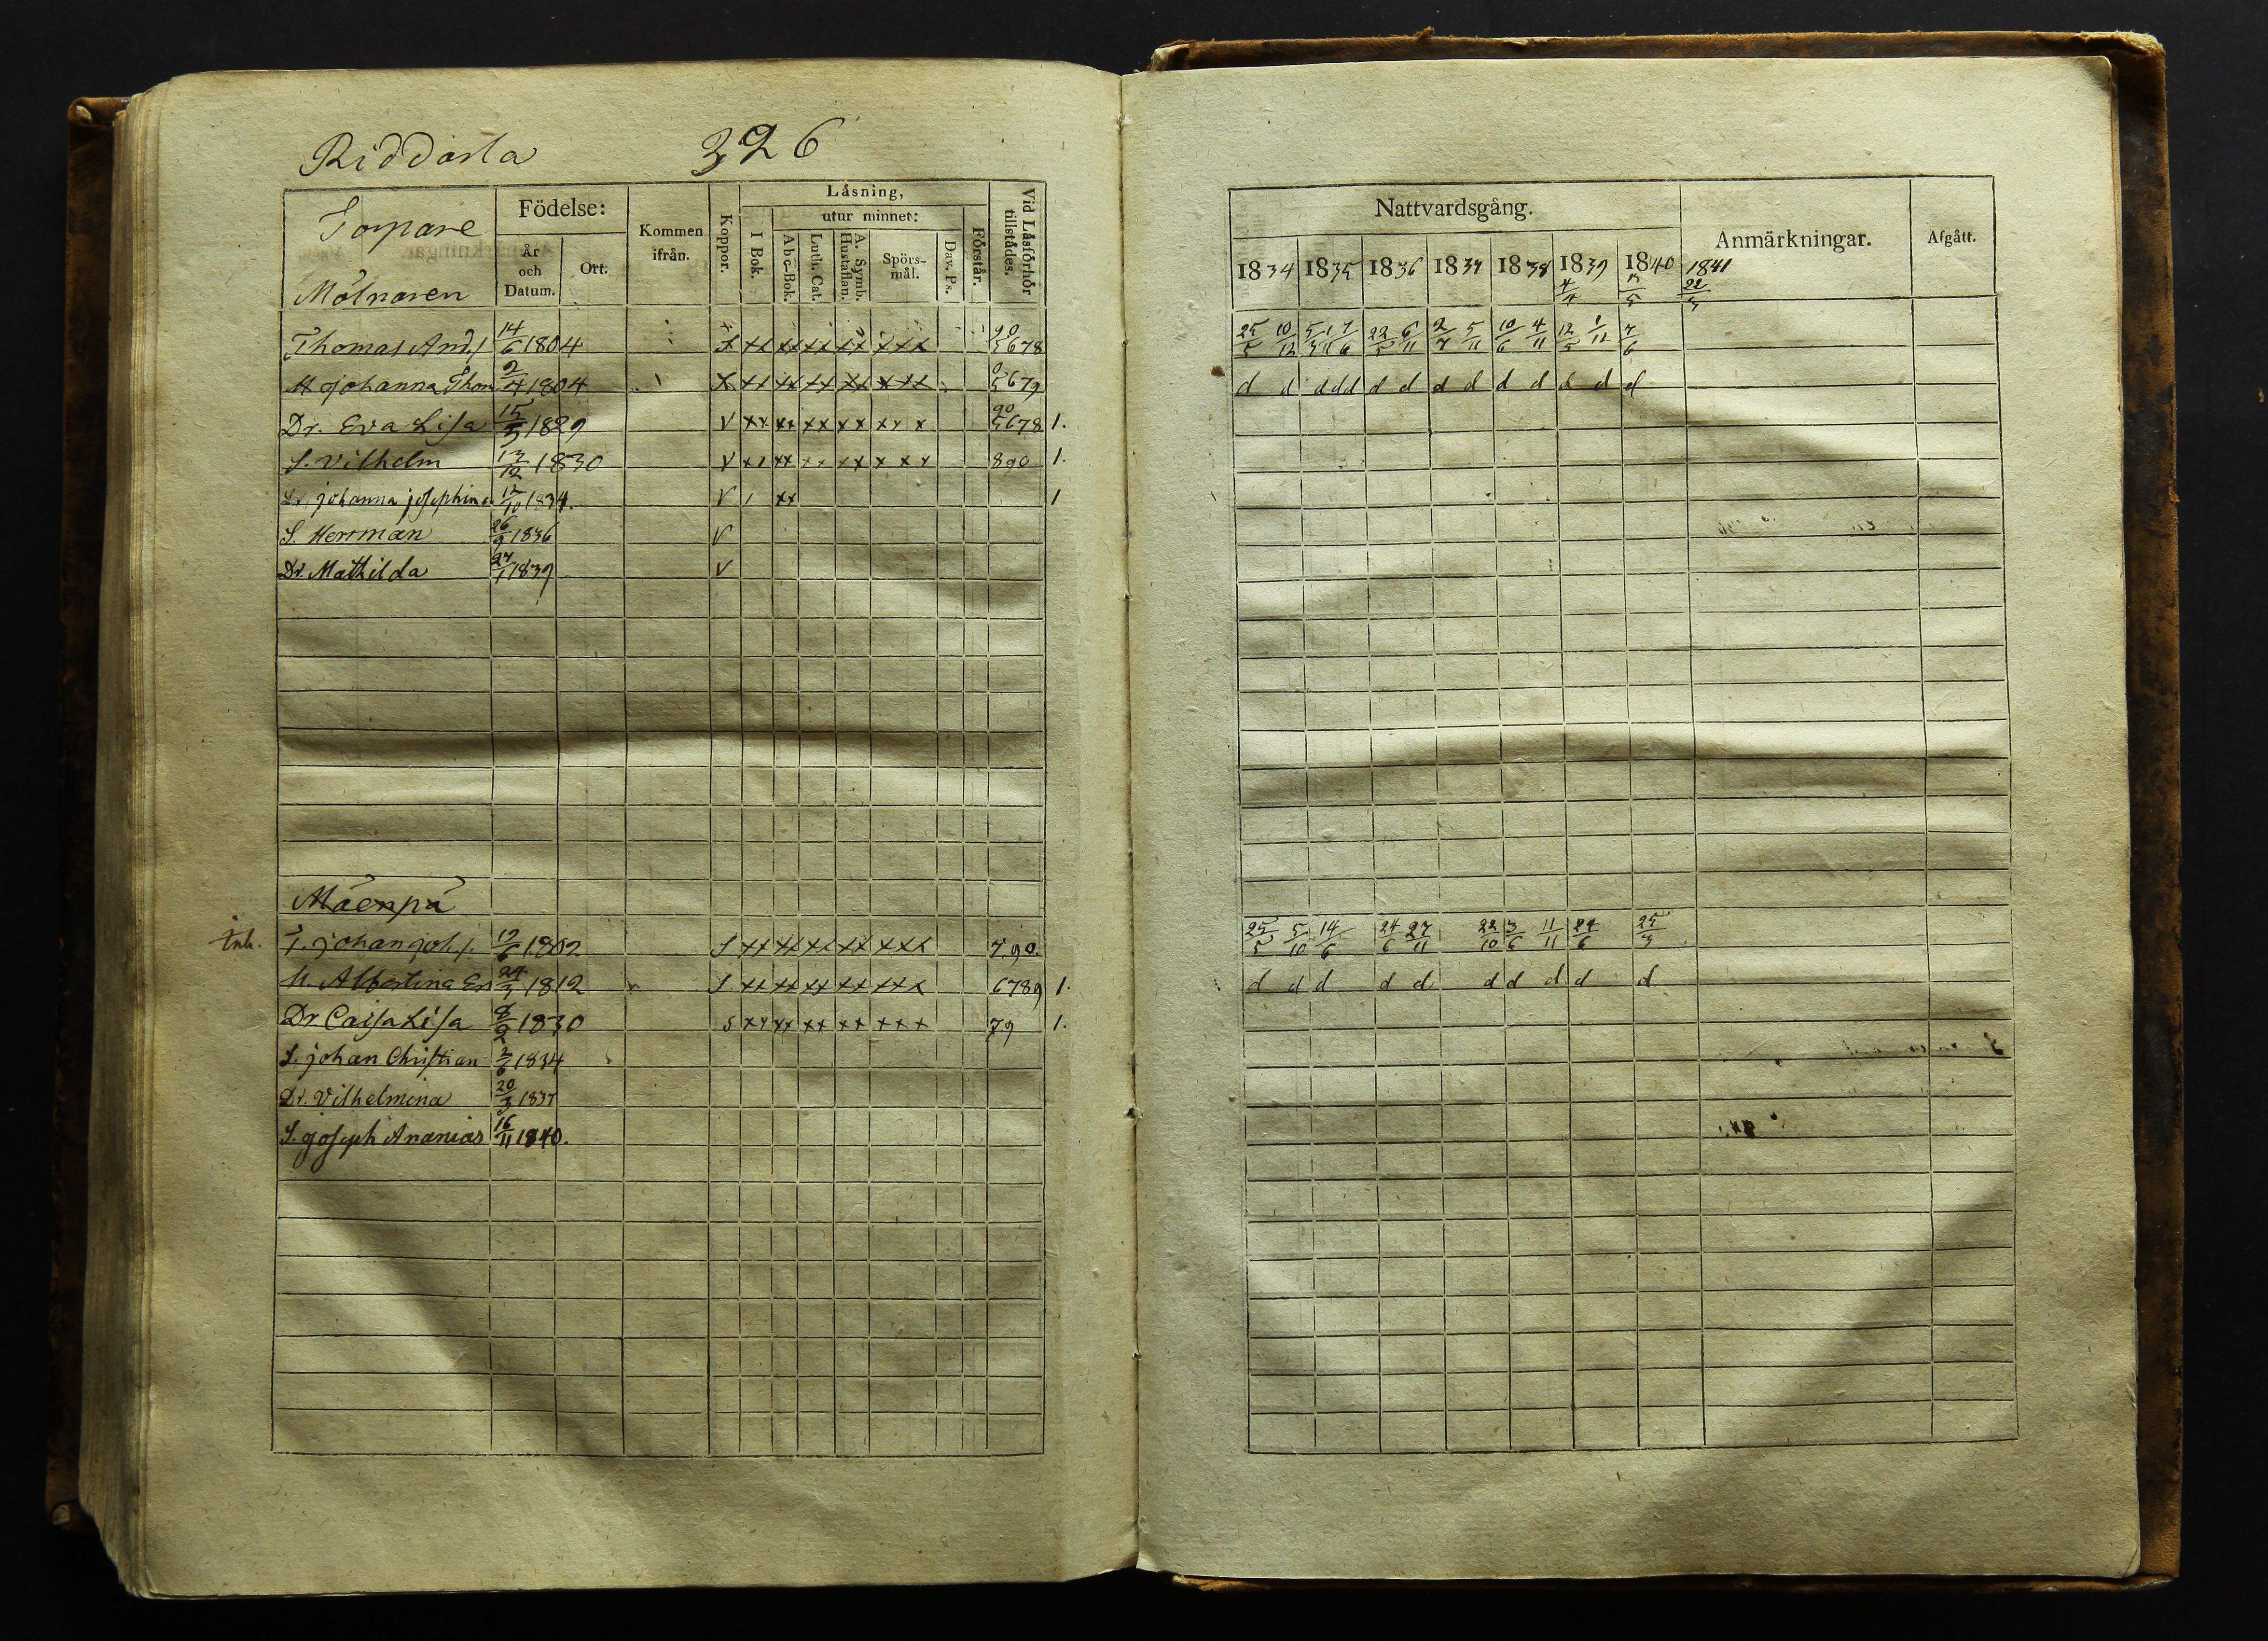 Riddarla 326
Torpare
Födelse:
År och Datum.
Ort:
Kommen ifrån.
Koppor.
Låsning,
I Bok.
utur minnet:
Abc-Bok.
Luth. Cat.
A. Symb. Hustaflan.
Spörs-mål.
Dav. Ps.
Förstår.
Vid Låsförhör tillstädes.
Mölnaren
Thomas And.s 14/6 1804 xx xx xx xx xxx 90 5678
H Johanna Thom 2/4 1804 xx xx xx xx xxx 0 5679
Dr. Eva Lisa 15/5 1829 V xx xx xx xx xx x 90 5678 1.
S. Vilhelm 13/12 1830 V xx xx xx xx x x x 890 1.
Dr. Johanna Josephina 12/10 1834. V 1 xx 1
S. Herrman 26/9 1836 V
Dr. Mathilda 27/1 1839 V
Mäenpä
Inh. T. Johan Joh.s 12/6 1802 S xx xx xx xx xxx 7.90.
H. Albertina Er 24/3 1812 S xx xx xx xx xxx 6789 1.
Dr Caisa Lisa 8/2 1830 S xx xx xx xx xxx 79 1.
S. Johan Christian 2/6 1834
Dr. Vilhelmina 20/3 1837
S. Joseph Ananias 16/11 1840.
Nattvardsgång.
Anmärkningar.
Afgått.
1834 1835 1836 1837 1838 1839 1840 1841
4/4 22/3
25/5 10/12 22/5 6/11 2/7 5/11 10/6 4/11 12/5 1/12 7/6
d d d d d d d d d d d d d d
25/5 5/10 14/6 24/6 27/11 22/10 3/6 11/11 24/6 25/3
d d d d d d d d d d